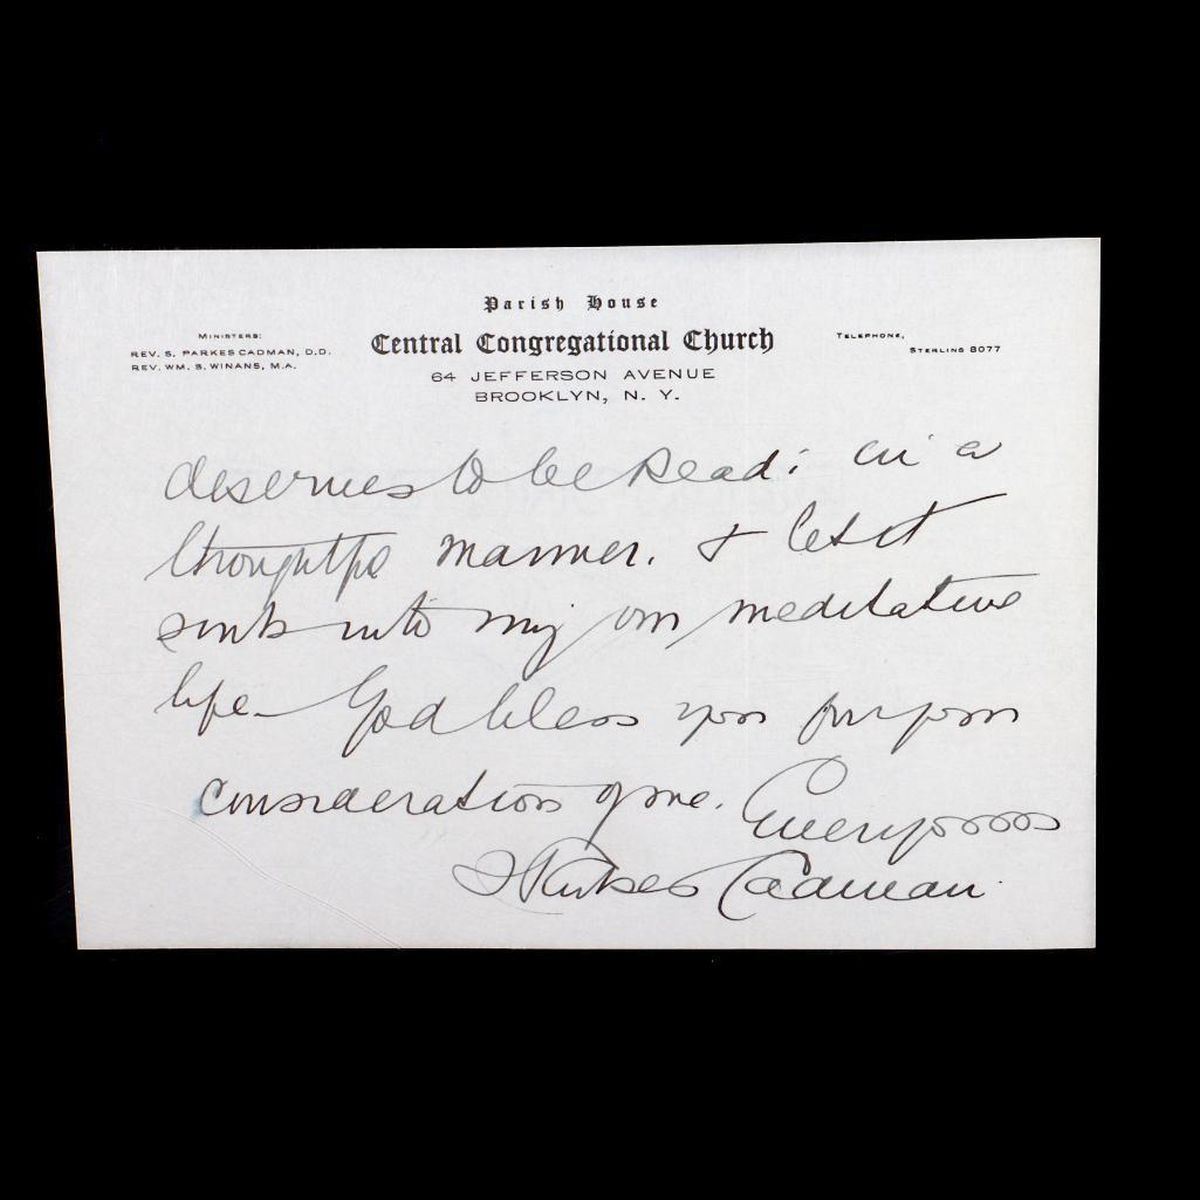 Parish House
Central Congregational Church
64 JEFFERSON AVENUE
BROOKLYN, N. Y.
MINISTERS:
REV. S. PARKES CADMAN, D.D.
REV. WM. S. WINANS, M.A.
TELEPHONE,
STERLING 8077
deserves to be read: in a
thoughtful manner. & let it
sink into my own meditative
life - God bless you for your
consideration of me. Ever yours
S Parkes Cadman.